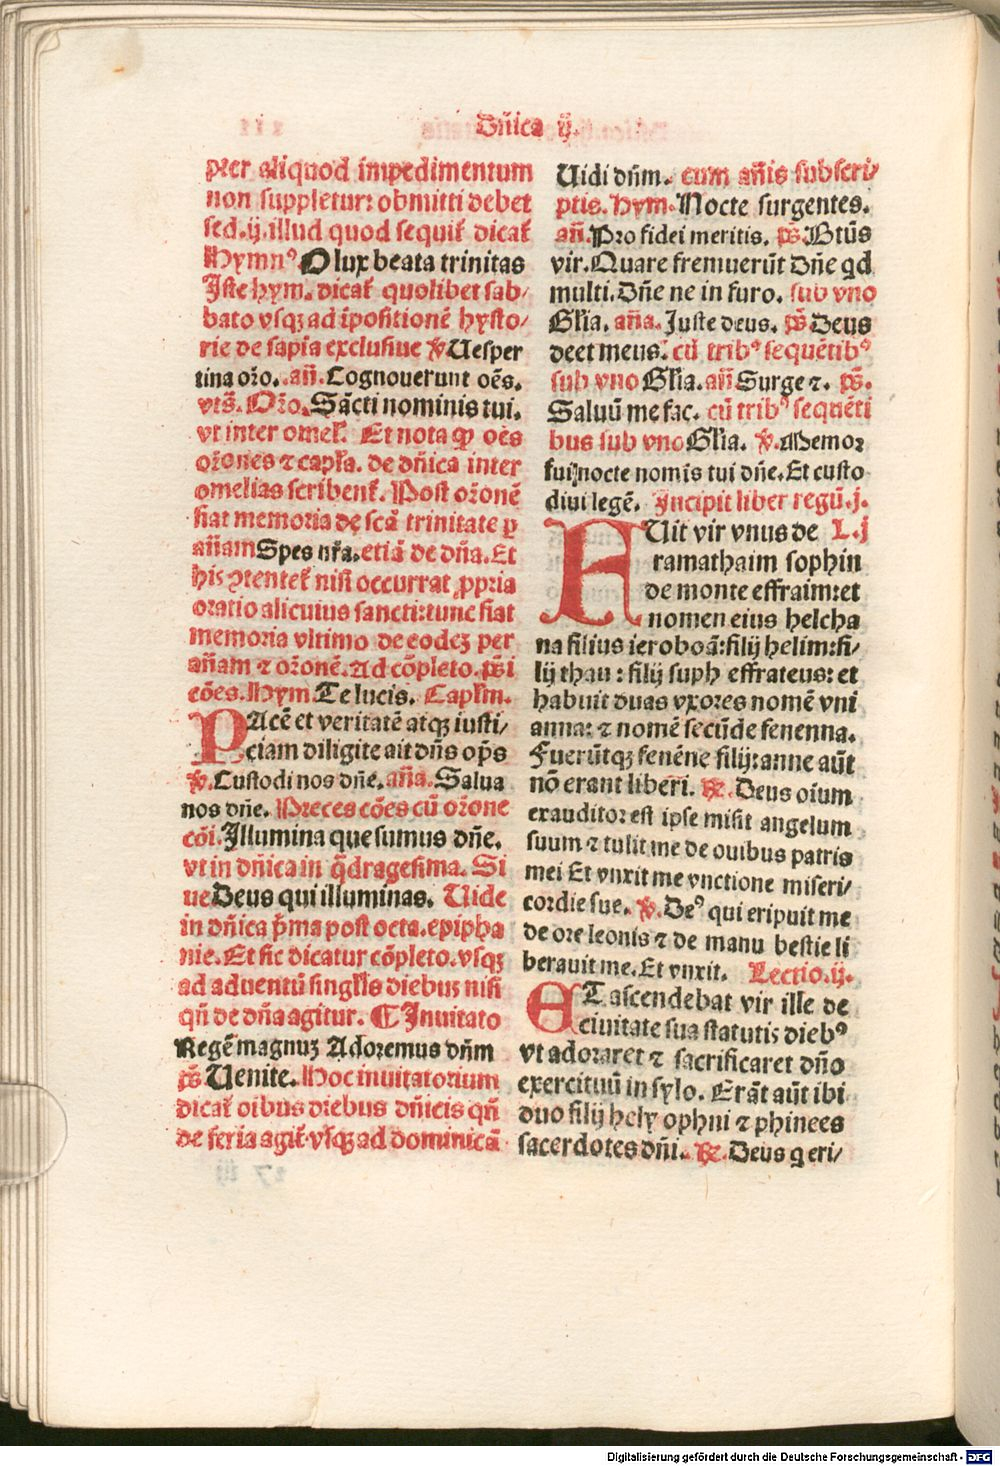 Dñica ij.
pter aliquod impedimentum
non suppletur: obmitti debet
sed .ij. illud quod sequit᷑ dicat᷑
Hymnꝰ. O lux beata trinitas
Iste hym. dicat᷑ quolibet sab/
bato vsqꝫ ad īpositionē hysto/
rie de sapīa exclusiue ℣ Uesper
tina oŕo. .añ. Cognouerunt oēs.
vts̄. Oŕo. Sācti nominis tui.
vt inter omel᷑. Et nota ꝙ oēs
oŕones ⁊ capl᷑a. de dñica inter
omelias scribent᷑. Post oŕonē
fiat memoria de scā trinitate ꝑ
añam Spes nŕa. etiā de dña. Et
his ꝯtentet᷑ nisi occurrat ꝓpria
oratio alicuius sancti: tunc fiat
memoria vltimo de eodeꝫ per
añam ⁊ oŕonē. Ad cōpleto. p̄s i
cōes. Hym. Te lucis. Capl᷑m.
PAcē et veritatē atqꝫ iusti/
ciam diligite ait dñs op̄s
℣. Custodi nos dñe. aña. Salua
nos dñe. Preces cōes cū oŕone
cōi. Illumina quesumus dñe.
vt in dñica in q̄dragesima. Si
ue Deus qui illuminas. Uide
in dñica p̄ma post octa. epipha
nie. Et sic dicatur cōpleto. vsqꝫ
ad aduentū singl᷑is diebus nisi
qñ de dña agitur. ¶ Inuitato
Regē magnuꝫ Adoremus dñm
p̄s Uenite. Hoc inuitatorium
dicat᷑ oibus diebus dñicis qñ
de feria agit᷑ vsqꝫ ad dominicā
Uidi dñm. cum añis subscri/
ptis. Hym. Nocte surgentes.
añ. Pro fidei meritis. p̄s. Btūs
vir. Quare fremuerūt Dñe qd
multi. Dñe ne in furo. sub vno
Gl᷑ia. aña. Iuste deus. p̄s Deus
deet meus. cū tribꝰ sequētibꝰ
sub vno Gl᷑ia. añ Surge ⁊. p̄s.
Saluū me fac. cū tribꝰ sequēti
bus sub vno Gl᷑ia. ℣. Memor
fui nocte nomīs tui dñe. Et custo
diui legē. Incipit liber regū .j.
FUit vir vnus de L. j
ramathaim sophin
de monte effraim: et
nomen eius helcha
na filius ieroboā: filij helim: fi/
lij thau: filij suph effrateus: et
habuit duas vxores nomē vni
anna: ⁊ nomē secūde fenenna.
Fuerūtqꝫ fenēne filij: anne aūt
nō erant liberi. ℟. Deus oium
exauditor est ipse misit angelum
suum ⁊ tulit me de ouibus patris
mei Et vnxit me vnctione miseri/
cordie sue. ℣. Deꝰ qui eripuit me
de ore leonis ⁊ de manu bestie li
berauit me. Et vnxit. Lectio .ij.
ET ascendebat vir ille de
ciuitate sua statutis diebꝰ
vt adoraret ⁊ sacrificaret dño
exercituū in sylo. Erāt aūt ibi
duo filij hely ophni ⁊ phinees
sacerdotes dñi. ℟. Deus q eri/
Digitalisierung gefördert durch die Deutsche Forschungsgemeinschaft - DFG